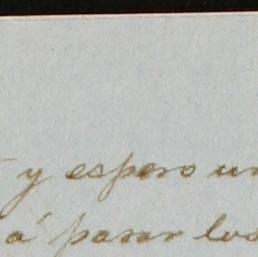 y espero un
á pasar los